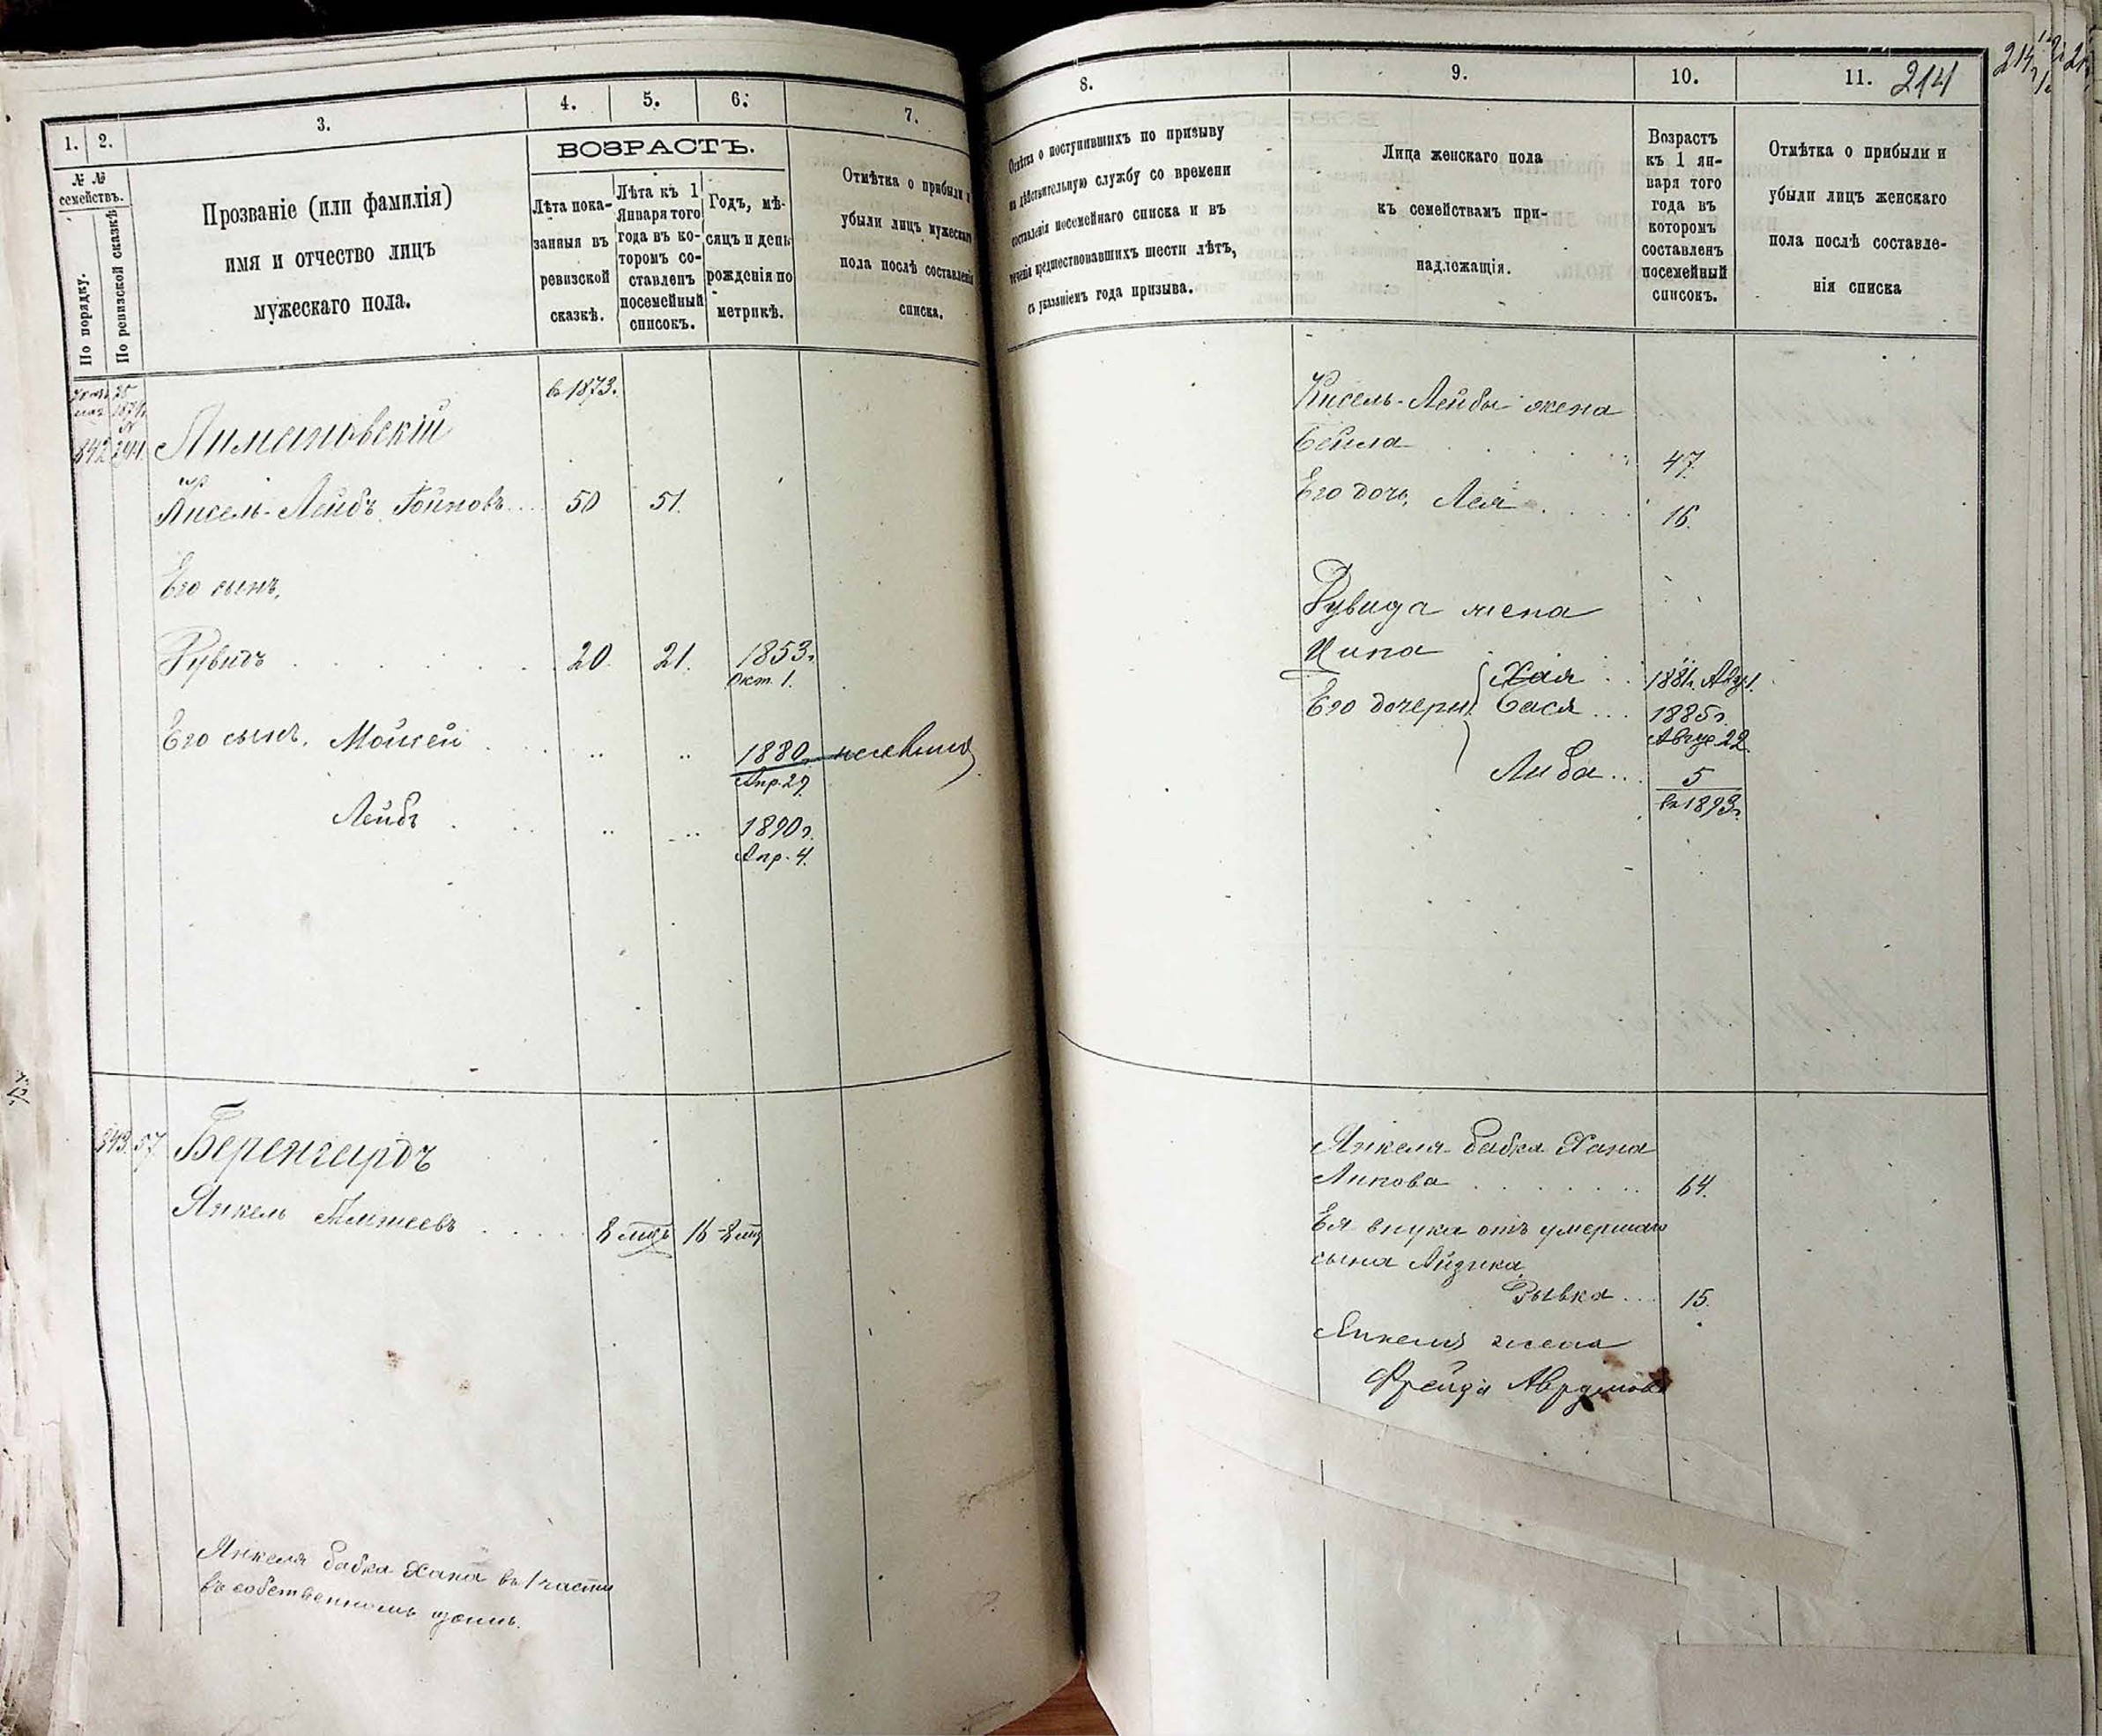 1.
2.
3.
4.
5.
6.
7.
№ №
семействъ.
По порядку.
По ревизской сказкѣ
Прозваніе (или фамилія)
имя и отчество лицъ
мужескаго пола.
ВОЗРАСТЪ.
Лѣта пока-
занныя въ
ревизской
сказкѣ.
Лѣта къ 1
Января того
года въ ко-
торомъ со-
ставленъ
посемейный
списокъ.
Годъ, мѣ-
сяцъ и день
рожденія по
метрикѣ.
Отмѣтка о прибыли и
убыли лицъ мужескаго
пола послѣ составленія
списка.
въ 1873.
Кисель-Лейбъ
50
51.
Его сынъ,
Рувидъ
20.
21.
1853г.
Окт. 1.
Его сынъ, Мойсей
1880г.
Апр. 29.
Лейбъ
1890г.
Апр. 4.
57
Беренгардъ
Янкель
8
16
Янкеля бабка Хана въ 1 части
въ собственномъ домѣ.
8.
9.
10.
11.
214
Отмѣтка о поступившихъ по призыву
на дѣйствительную службу со времени
составленія посемейнаго списка и въ
теченіи предшествовавшихъ шести лѣтъ,
съ указаніемъ года призыва.
Лица женскаго пола
къ семействамъ при-
надлежащія.
Возрастъ
къ 1 ян-
варя того
года въ
которомъ
составленъ
посемейный
списокъ.
Отмѣтка о прибыли и
убыли лицъ женскаго
пола послѣ составле-
нія списка
Кисель-Лейбы жена
Бейла
47.
Его дочь, Лея
16.
Рувида жена
Ципа
Его дочери
Хая
1881г. Авг. 1.
Бася
1885г.
Август 22
Либа
5
въ 1893г.
Янкеля бабка Хана
Липова
64.
Ея внука отъ умершаго
сына Айзика
Рывка
15.
Янкеля жена
Фрейда Аврумова